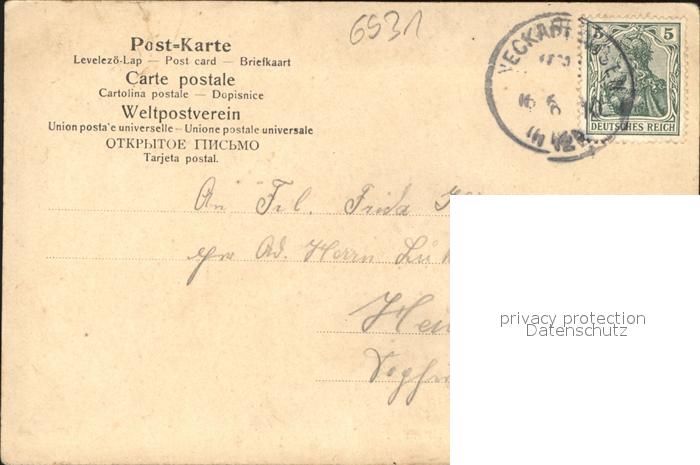 6931
Post=Karte
Levelező-Lap — Post card — Briefkaart
Carte postale
Cartolina postale — Dopisnice
Weltpostverein
Union posta'e universelle – Unione postale universale
ОТКРЫТОЕ ПИСЬМО
Tarjeta postal.
5
DEUTSCHES REICH
An Frl. Frida
Herrn
privacy protection
Datenschutz